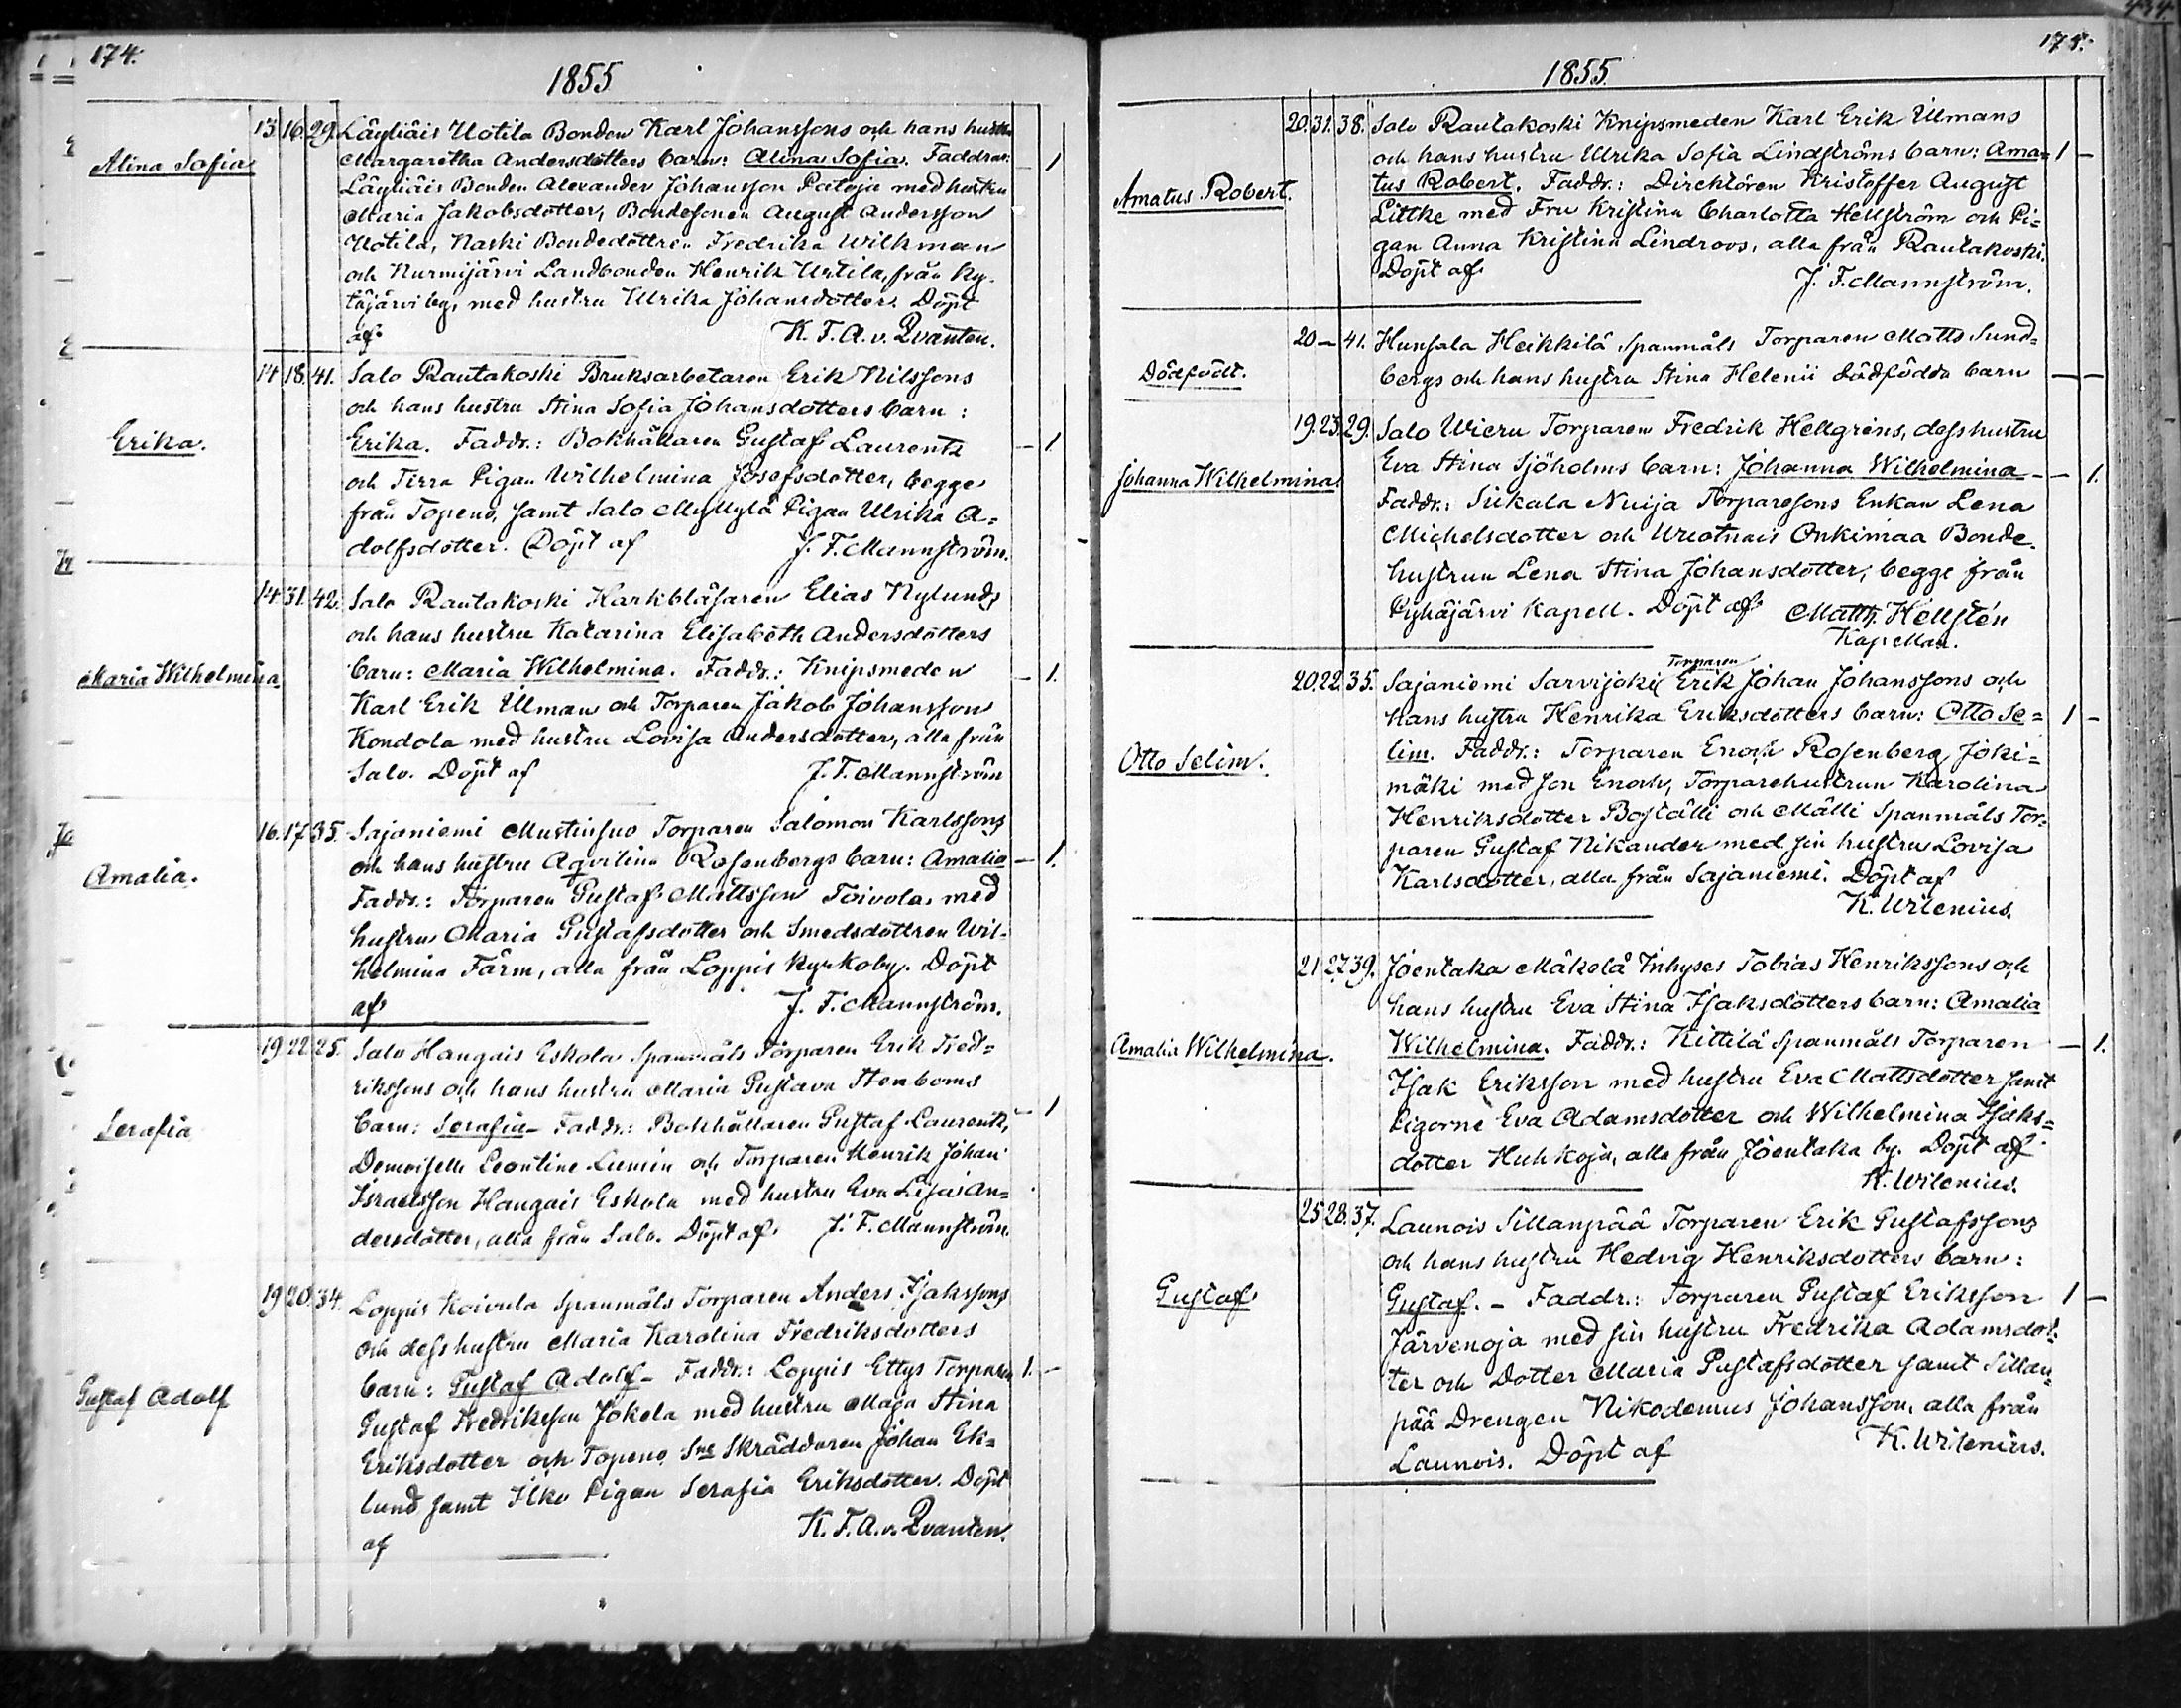 174.
1855
Alina Sofia
13. 16. 29. Läyliäis Uotila Bonden Karl Johanssons och hans hustru
Margaretha Andersdotters barn: Alina Sofia. Faddrar:
Läyliäis Bonden Alexander Johansson Patoja med hustru
Maria Jakobsdotter, Bondesonen August Andersson
Uotila, Naski Bondedottren Fredrika Wilkman
och Nurmijärvi Landbonden Henrik Urtila, från Ky-
täjärvi by, med hustru Ulrika Johansdotter. Döpt
af K. F. A. v. Qvanten.
— 1
Erika.
14. 18. 41. Salo Rautakoski Bruksarbetaren Erik Nilssons
och hans hustru Stina Sofia Johansdotters barn:
Erika. Faddr.: Bokhållaren Gustaf Laurentz
och Pigan Wilhelmina Josefsdotter, begge
från Topeno, samt Salo Myllylä Pigan Ulrika A=
dolfsdotter. Döpt af J. F. Mannström.
— 1.
Maria Wilhelmina
14. 31. 42. Salo Rautakoski Harkblåsaren Elias Nylunds
och hans hustru Katarina Elisabeth Andersdotters
barn: Maria Wilhelmina. Faddr.: Knipsmeden
Karl Erik Ullman och Torparen Jakob Johansson
Kondola med hustru Lovisa Andersdotter, alla från
Salo. Döpt af J. F. Mannström
— 1.
Amalia.
16. 17. 35. Sajaniemi Mustinsuo Torparen Salomon Karlssons
och hans hustru Aqvilina Rosenbergs barn: Amalia
Faddr.: Torparen Gustaf Mattsson Toivola, med
hustru Maria Gustafsdotter och Smedsdottren Wil-
helmina Färm, alla från Loppis Kyrkoby. Döpt
af J. F. Mannström.
— 1.
Serafia
19. 22. 25. Salo Hangais Eskola Spanmåls Torparen Erik Fred=
rikssons och hans hustru Maria Gustava Stenboms
barn: Serafia — Faddr.: Bokhållaren Gustaf Laurentz,
Demoiselle Leontine och Torparen Henrik Johan
Israelsson Hangais Eskola med hustru Eva Lisa An=
dersdotter, alla från Salo. Döpt af J. F. Mannström.
— 1
Gustaf Adolf
19. 20. 34. Loppis Koivula Spanmåls Torparen Anders Isakssons
och dess hustru Maria Karolina Fredriksdotters
barn: Gustaf Adolf — Faddr.: Loppis Ettys Torparen
Gustaf Fredriksson Jokela med hustru Maja Stina
Eriksdotter och Topeno Sne Skräddaren Johan Ek=
lund samt Ilko Pigan Serafia Eriksdotter. Döpt
af K. F. A. v. Qvanten.
1. —
175.
1855.
Amatus Robert.
20. 31. 38. Salo Rautakoski Knipsmeden Karl Erik Ullmans
och hans hustru Ulrika Sofia Lindströms barn: Ama=
tus Robert. Faddr.: Direktören Kristoffer August
Littke med Fru Kristina Charlotta Hellström och Pi=
gan Anna Kristina Lindroos, alla från Rautakoski.
Döpt af J. F. Mannström.
1 —
Dödfödt.
20 — 41. Hunsala Heikkilä Spanmåls Torparen Matts Sund=
bergs och hans hustru Stina Helenii dödfödda barn
— —
Johanna Wilhelmina
19. 23. 29. Salo Wieru Torparen Fredrik Hellgréns, dess hustru
Eva Stina Sjöholms barn: Johanna Wilhelmina —
Faddr.: Siikala Nuija Torparesons Enkan Lena
Michelsdotter och Onkimaa Bonde-
hustrun Lena Stina Johansdotter, begge från
Pyhäjärvi Kapell. Döpt af Matth. Hellstén
Kapellan.
— 1.
Otto Selim.
20. 22. 35. Sajaniemi Sarvijoki Torparen Erik Johan Johanssons och
hans hustru Henrika Eriksdotters barn: Otto Se=
lim. Faddr.: Torparen Enoch Rosenberg Joki=
mäki med son Enoch, Torparehustrun Karolina
Henriksdotter Boställi och Mälli Spanmåls Tor=
paren Gustaf Nikander med sin hustru Lovisa
Karlsdotter, alla från Sajaniemi. Döpt af
K. Wilenius.
1 —
Amalia Wilhelmina.
21. 27. 39. Joentaka Mäkelä Inhyses Tobias Henrikssons och
hans hustru Eva Stina Isaksdotters barn: Amalia
Wilhelmina. Faddr.: Kittilä Spanmåls Torparen
Isak Eriksson med hustru Eva Mattsdotter samt
Pigorne Eva Adamsdotter och Wilhelmina Isaks=
dotter Huhkoja, alla från Joentaka by. Döpt af
K. Wilenius.
— 1.
Gustaf
25. 28. 37. Launois Sillanpää Torparen Erik Gustafssons
och hans hustru Hedvig Henriksdotters barn:
Gustaf. — Faddr.: Torparen Gustaf Eriksson
Järvenoja med sin hustru Fredrika Adamsdot-
ter och Dotter Maria Gustafsdotter samt Sillan=
pää Drengen Nikodemus Johansson, alla från
Launois. Döpt af K. Wilenius.
1 —